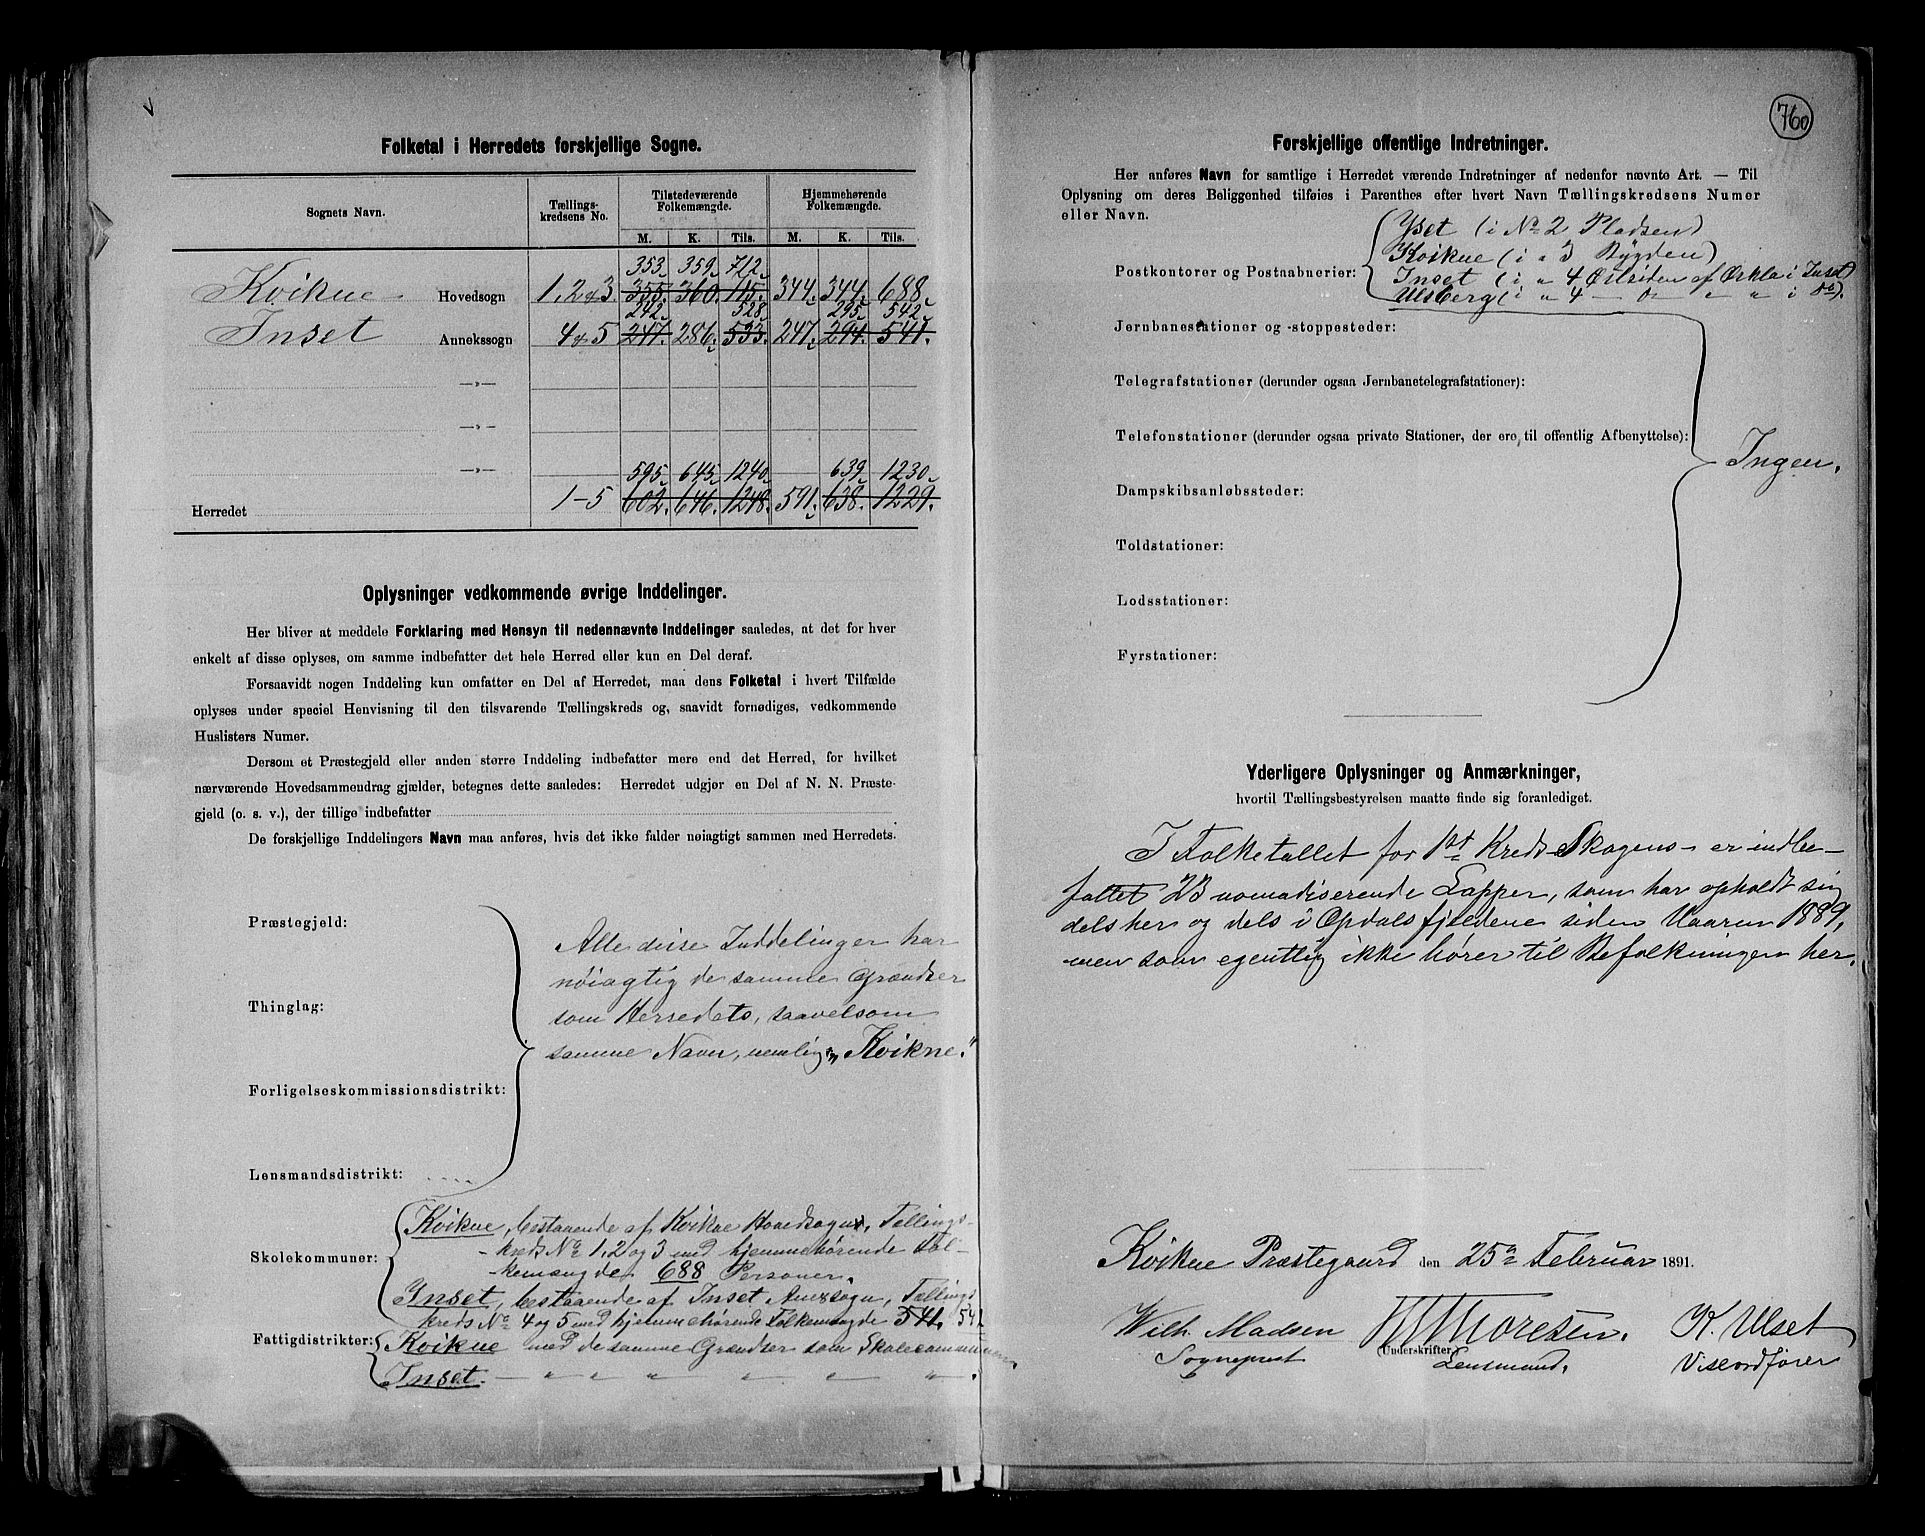 Folketal i Herredets forskjellige Sogne.
Sognets Navn. Tællings-kredsens No. Tilstedeværende Folkemængde. Hjemmehørende Folkemængde.
M. K. Tils. M. K. Tils.
353. 359. 712.
Kvikne Hovedsogn 1, 2 & 3 355. 360. 715. 344. 344. 688.
242. 528. 295. 542.
Inset Annekssogn 4 & 5 247. 286. 533. 247. 294. 541.
—»—
—»—
—»—
595. 645. 1240. 639. 1230.
Herredet 1-5 602. 646. 1248. 591. 638. 1229.
Oplysninger vedkommende øvrige Inddelinger.
Her bliver at meddele Forklaring med Hensyn til nedennævnte Inddelinger saaledes, at det for hver
enkelt af disse oplyses, om samme indbefatter det hele Herred eller kun en Del deraf.
Forsaavidt nogen Inddeling kun omfatter en Del af Herredet, maa dens Folketal i hvert Tilfælde
oplyses under speciel Henvisning til den tilsvarende Tællingskreds og, saavidt fornødiges, vedkommende
Huslisters Numer.
Dersom et Præstegjeld eller anden større Inddeling indbefatter mere end det Herred, for hvilket
nærværende Hovedsammendrag gjælder, betegnes dette saaledes: Herredet udgjør en Del af N. N. Præste-
gjeld (o. s. v.), der tillige indbefatter
De forskjellige Inddelingers Navn maa anføres, hvis det ikke falder nøiagtigt sammen med Herredets.
Præstegjeld:
Thinglag:
Forligelseskommissionsdistrikt:
Lensmandsdistrikt:
Alle disse Inddelinger har
nöiagtig de samme Grændser
som Herredets, saavelsom
samme Navn, nemlig "Kvikne."
Skolekommuner:
Kvikne, bestaaende af Kvikne Hovedsogn, Tællings-
kreds No 1, 2 og 3 med hjemmehörende Fol-
kemængde 688 Personer.
Inset, bestaaende af Inset Anexsogn, Tællings
kreds No 4 og 5 med hjemmehörende Folkemængde 541. 542
Fattigdistrikter: Kvikne med de samme Grændser som Skolecommunen
Inset. — " " " " " ".
760
Forskjellige offentlige Indretninger.
Her anføres Navn for samtlige i Herredet værende Indretninger af nedenfor nævnte Art. — Til
Oplysning om deres Beliggenhed tilføies i Parenthes efter hvert Navn Tællingskredsens Numer
eller Navn.
Postkontorer og Postaabnerier:
Yset (i No 2 Pladsen)
Kvikne (i " 3 Bygden)
Inset (i " 4 Östsiden af Ørkla i Inset)
Ulsberg (i " 4 — do " " i do).
Jernbanestationer og -stoppesteder:
Telegrafstationer (derunder ogsaa Jernbanetelegrafstationer):
Telefonstationer (derunder ogsaa private Stationer, der ere til offentlig Afbenyttelse):
Ingen.
Dampskibsanløbssteder:
Toldstationer:
Lodsstationer:
Fyrstationer:
Yderligere Oplysninger og Anmærkninger,
hvortil Tællingsbestyrelsen maatte finde sig foranlediget.
I Folketallet for 1st Kreds Skogens er indbe-
fattet 23 nomadiserende Lapper, som har opholdt sig
dels her og dels i Opdalsfjeldene siden Vaaren 1889,
men som egentlig ikke hörer til Befolkningen her.
Kvikne Præstegaard den 25de Februar 1891.
Wilh. Madsen Thoresen. K. Ulset
(Underskrifter)
Sogneprest Lensmand. Viseordförer